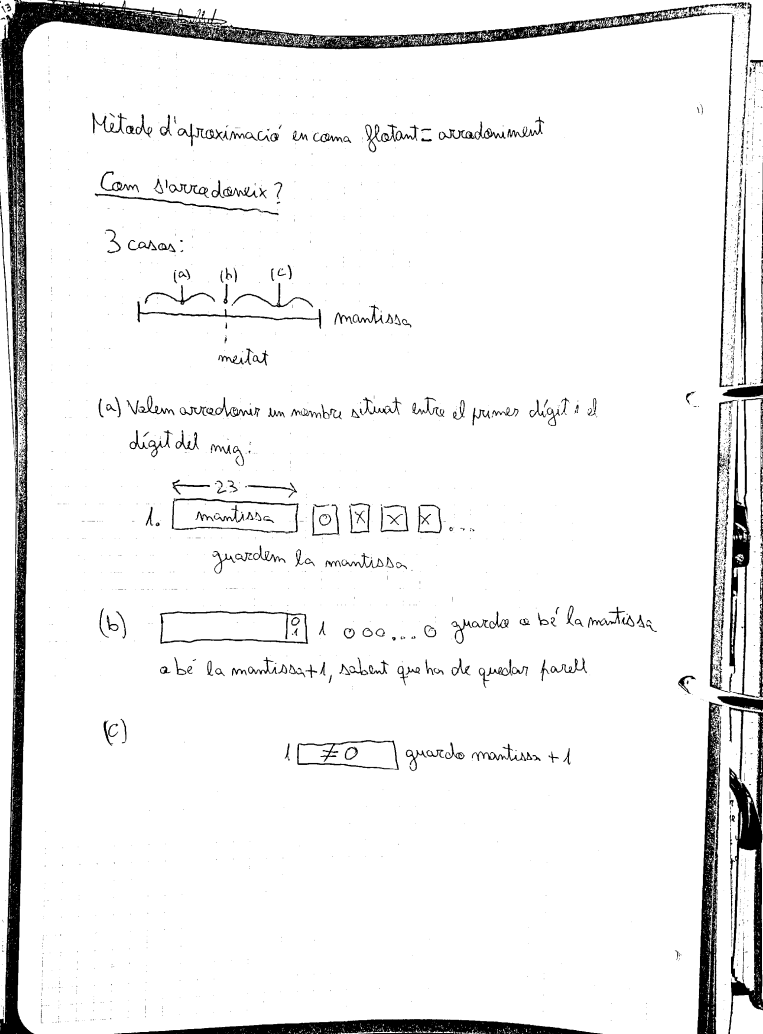 Mètode d'aproximació en coma flotant = arrodoniment
Com s'arrodoneix?
3 casos:
(a) (b) (c)
mantissa
meitat
(a) Volem arrodonir un nombre situat entre el primer dígit i el
dígit del mig:
23
1. mantissa 0 X X X ...
guardem la mantissa
(b) 0 1 1 000...0 guardo o bé la mantissa
o bé la mantissa+1, sabent que ha de quedar parell
(c)
1 ≠0 guardo mantissa + 1